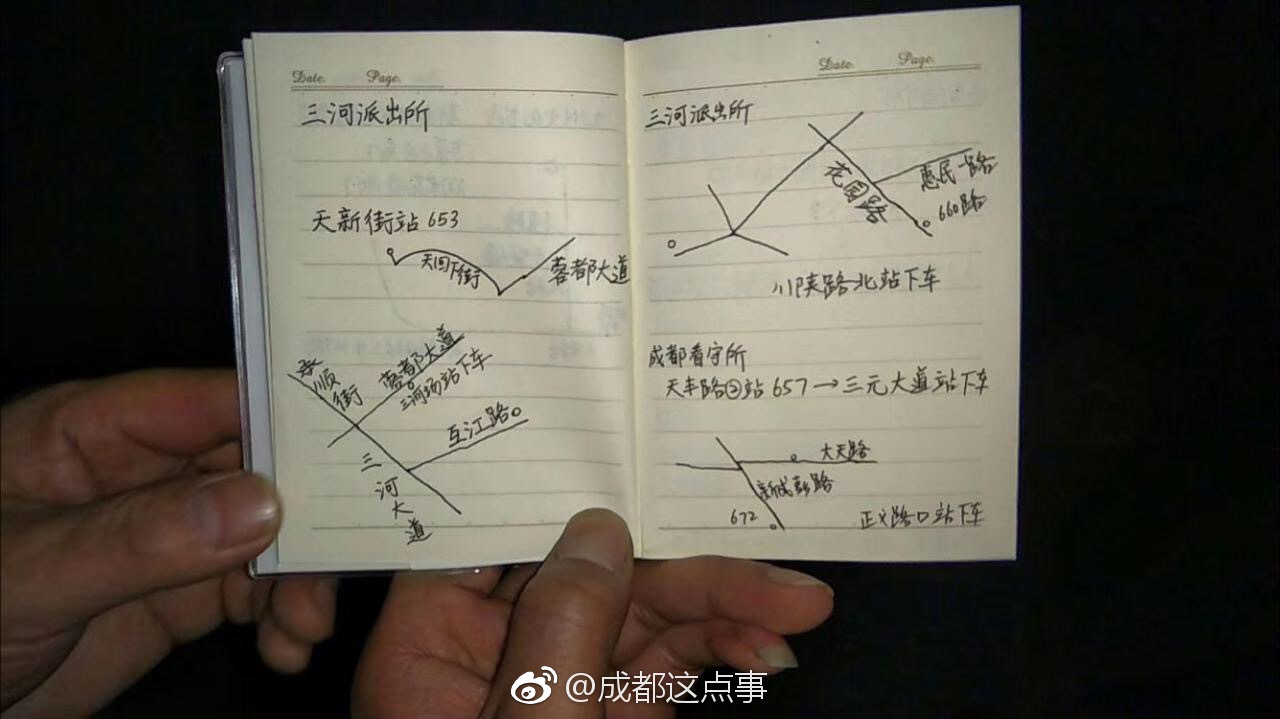 Date. Page.
三河派出所
天新街站 653
天回下街
蓉都大道
顺街
蓉都大道
三河场站下车
互江路
三河大道
Date. Page.
三河派出所
花园路
惠民路
660路
川陕路北站下车
成都看守所
天丰路②站 657→三元大道站下车
大天路
新成彭路
672
正义路口站下车
@成都这点事